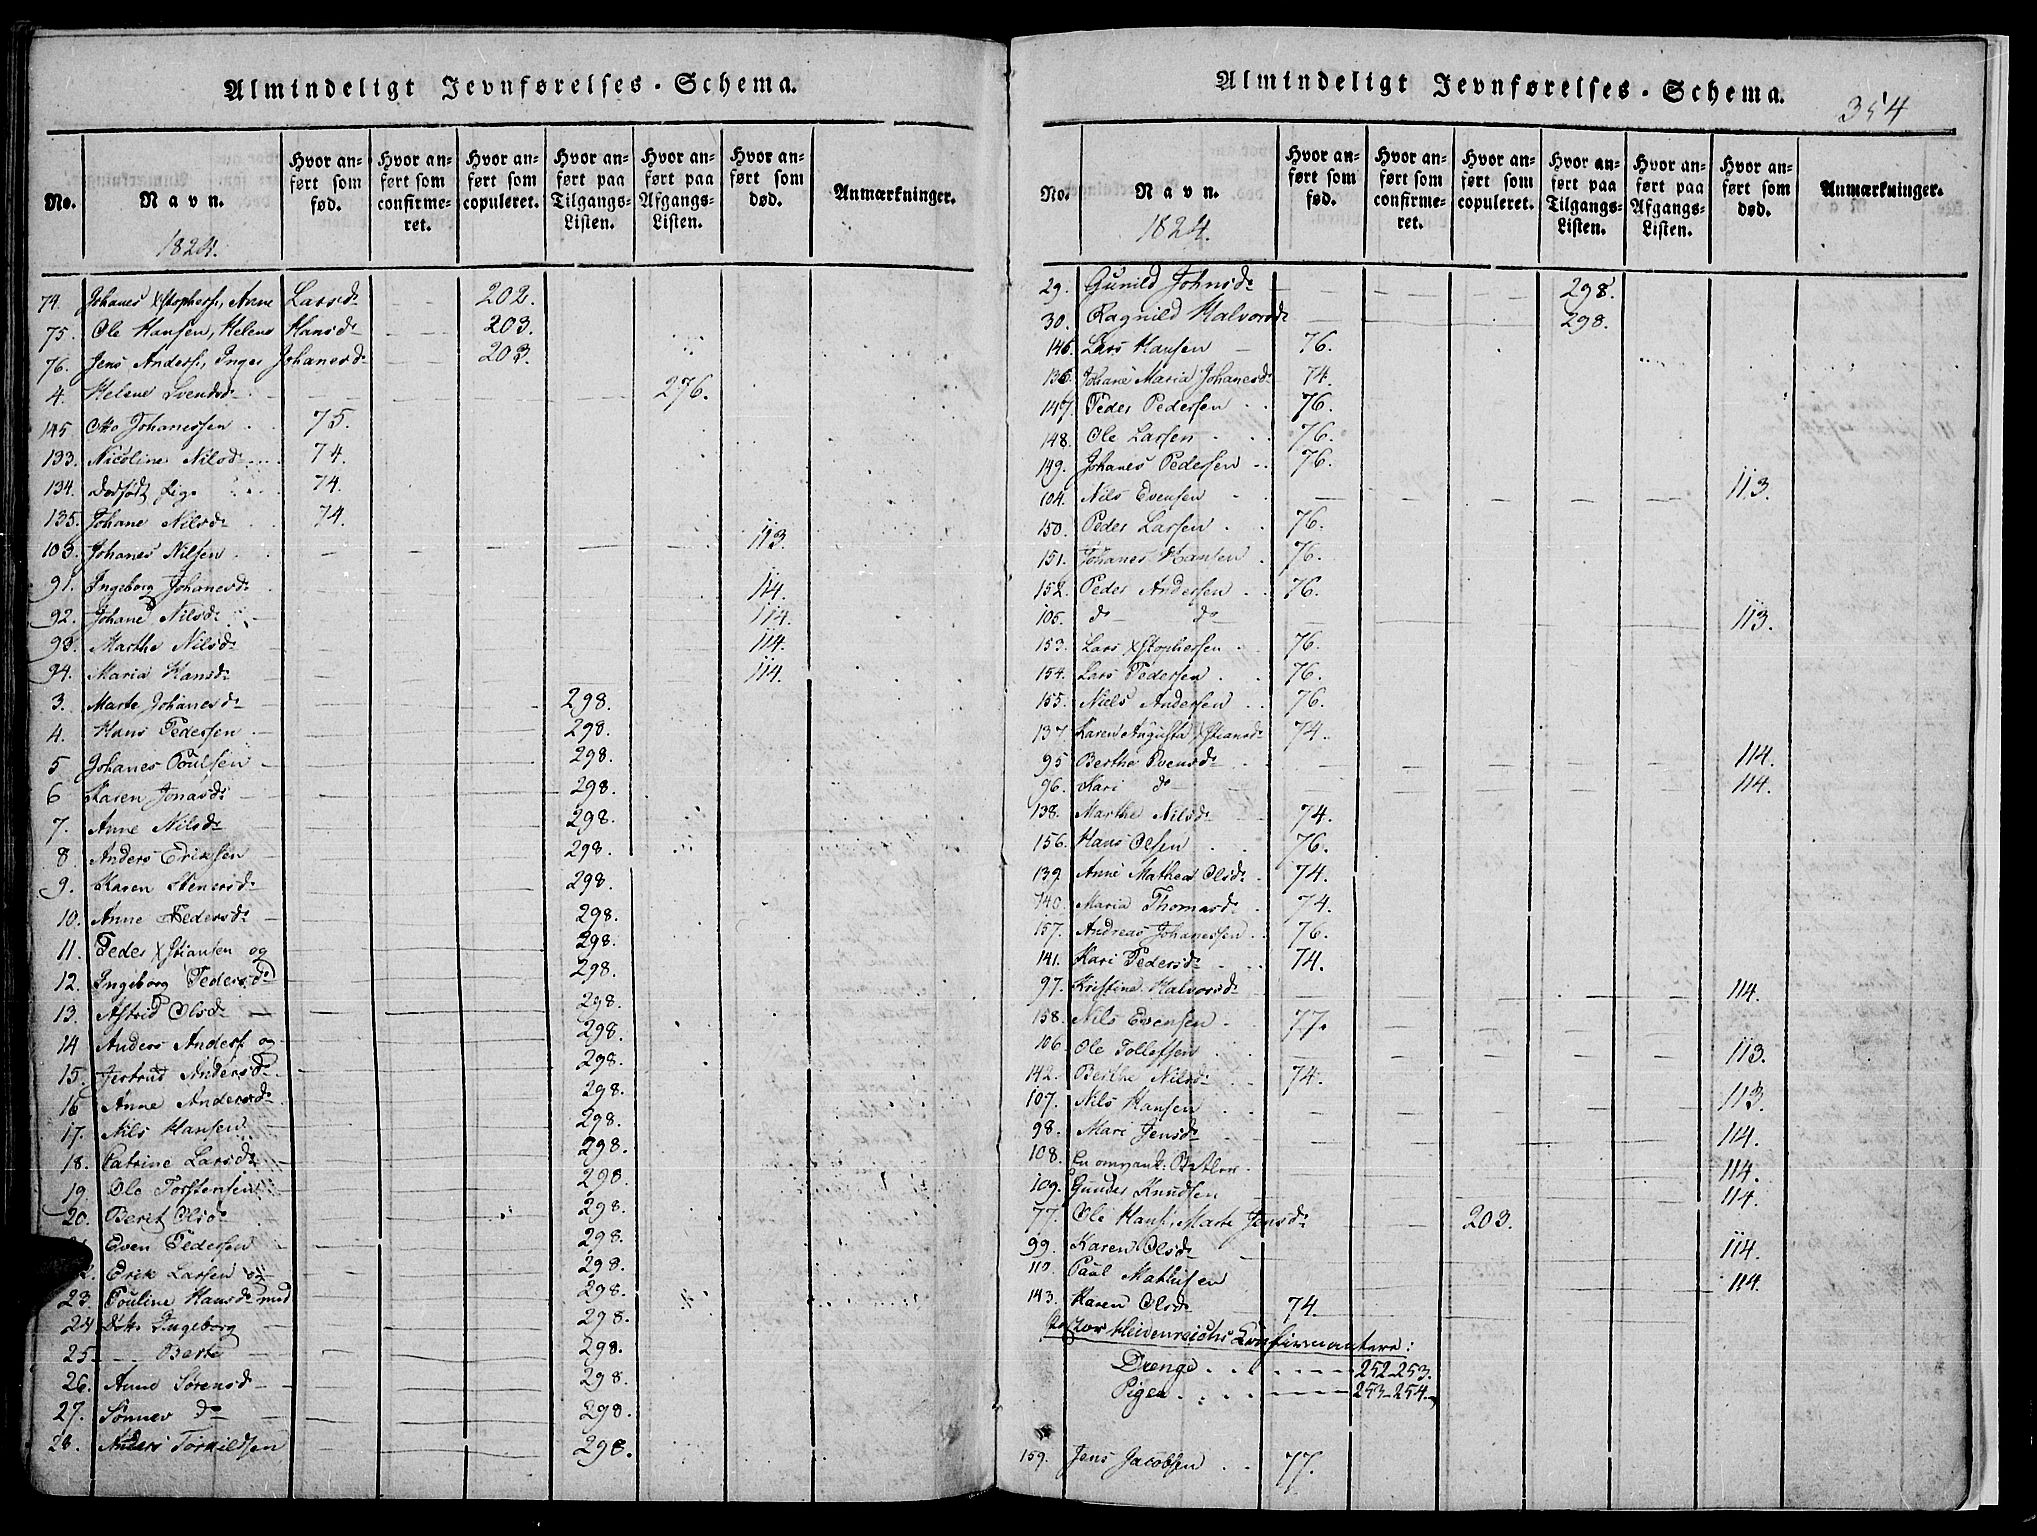 Almindeligt Jevnførelses-Schema.
No. Navn. Hvor anført som fød. Hvor anført som confirmeret. Hvor anført som copuleret. Hvor anført paa Tilgangs-Listen. Hvor anført paa Afgangs-Listen. Hvor anført som død. Anmærkninger.
1824.
74. Johanes Xstophers:, Anne Larsd 202.
75. Ole Hansen, Helene Hansd 203.
76. Jens Anders:, Inger Johanesd 203.
4. Helene Svendsd 276.
145 Otto Johanessen 75.
133. Nicoline Nilsd 74.
134. Dødfødt Pige 74.
135. Johane Nilsd 74.
103. Johanes Nilsen 113.
91. Ingeborg Johanesd 114.
92. Johane Nilsd 114.
93. Marthe Nilsd 114.
94. Maria Hansd 114.
3. Marte Johanesd 298.
4. Hans Pedersen 298.
5 Johanes Poulsen 298.
6 Karen Jonasd 298.
7. Anne Nilsd 298.
8 Anders Eriksen 298.
9. Karen Stenersd 298.
10. Anne Pedersd 298.
11. Peder Xstiansen og 298.
12. Ingeborg Pedersd 298.
13. Astrid Olsd 298.
14 Anders Anders: og 298.
15. Jertrud Andersd 298.
16 Anne Andersd 298.
17. Nils Hansen 298.
18. Patrine Larsd 298.
19. Ole Torstensen 298.
20. Berit Olsd 298.
Even Pedersen 298.
2. Erik Larsen og 298.
23. Pouline Hansd med 298.
24 Dttr Ingeborg 298.
25 Berte 298.
26. Anne Sørensd 298.
27. Sønnev do 298.
28. Anders Torkildsen 298.
Almindeligt Jevnførelses-Schema.
354
No. Navn. Hvor anført som fød. Hvor anført som confirmeret. Hvor anført som copuleret. Hvor anført paa Tilgangs-Listen. Hvor anført paa Afgangs-Listen. Hvor anført som død. Anmærkninger.
1824.
29. Gunild Johnsd 298.
30. Ragnild Halvorsd 298.
146. Lars Hansen 76.
136. Johane Maria Johanesd 74.
147. Peder Pedersen 76.
148. Ole Larsen 76.
149. Johanes Pedersen 76.
104. Nils Evensen 113.
150. Peder Larsen 76.
151. Johanes Hansen 76.
152. Peder Andersen 76.
105. do do 113.
153. Lars Xstophersen 76.
154. Lars Pedersen 76.
155. Niels Andersen 76.
137. Karen Augusta Xstiansd 74.
95 Berthe Evensd 114.
96. Kari do 114.
138. Marthe Nilsd 74.
156. Hans Olsen 76.
139. Anne Mathea Olsd 74.
140. Maria Thomasd 74.
157. Andreas Johanessen 76.
141. Kari Pedersd 74.
97. Kristine Halvorsd 114.
158. Nils Evensen 77.
106. Ole Tollefsen 113.
142. Berthe Nilsd 74.
107. Nils Hansen 113.
98. Mari Jensd 114.
108. En omvank: Betler 114.
109. Gunder Knudsen 114.
77. Ole Hans:, Marte Jensd 203.
99. Karen Olsd 114.
110. Paul Mathisen 114.
143. Karen Olsd 74.
Pastor Heidenreichs Confirmantere:
Drenge 252-253.
Piger 253-254.
159. Jens Jacobsen 77.